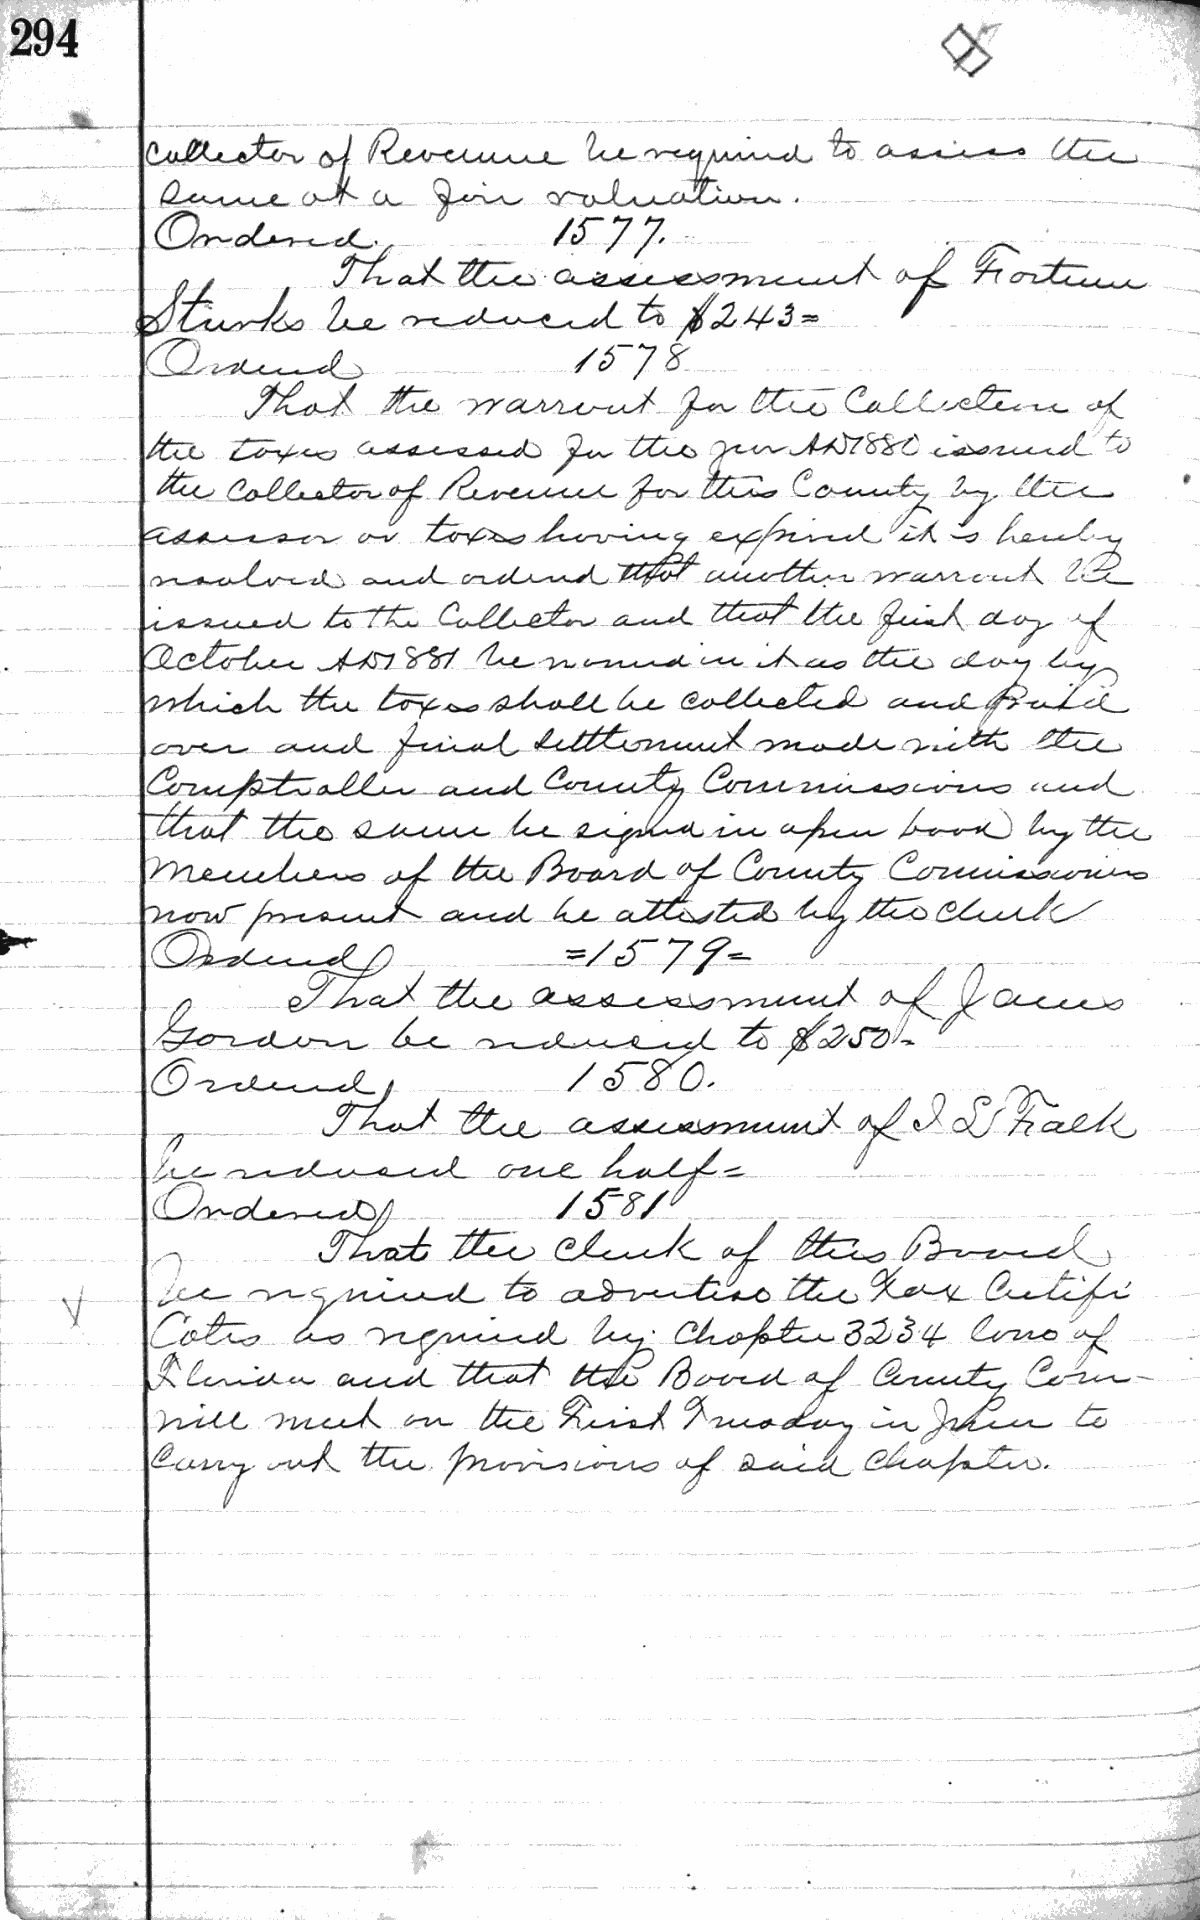 294
collector of Revenue be required to assess the
same at a fair valuation.
Ordered. 1577.
That the assessment of Fortune
Sturks be reduced to $243=
Ordered 1578
That the warrant for the Collection of
the taxes assessed for the year AD1880 issued to
the Collector of Revenue for this County by the
assessor of taxes having expired it is hereby
resolved and ordered that another warrant be
issued to the Collector and that the first day of
October AD1881 be named in it as the day by
which the taxes shall be collected and paid
over and final settlement made with the
Comptroller and County Commissioners and
that the same be signed in open board by the
members of the Board of County Commissioners
now present and be attested by the clerk
Ordered =1579=
That the assessment of James
Gordon be reduced to $250=
Ordered 1580.
That the assessment of I S
be reduced one half=
Ordered 1581
That the clerk of this Board
be required to advertise the Tax Certifi
Cates as required by Chapter 3234 laws of
Florida and that the Board of County Com-
will meet on the First Tuesday in June to
carry out the provisions of said chapter.